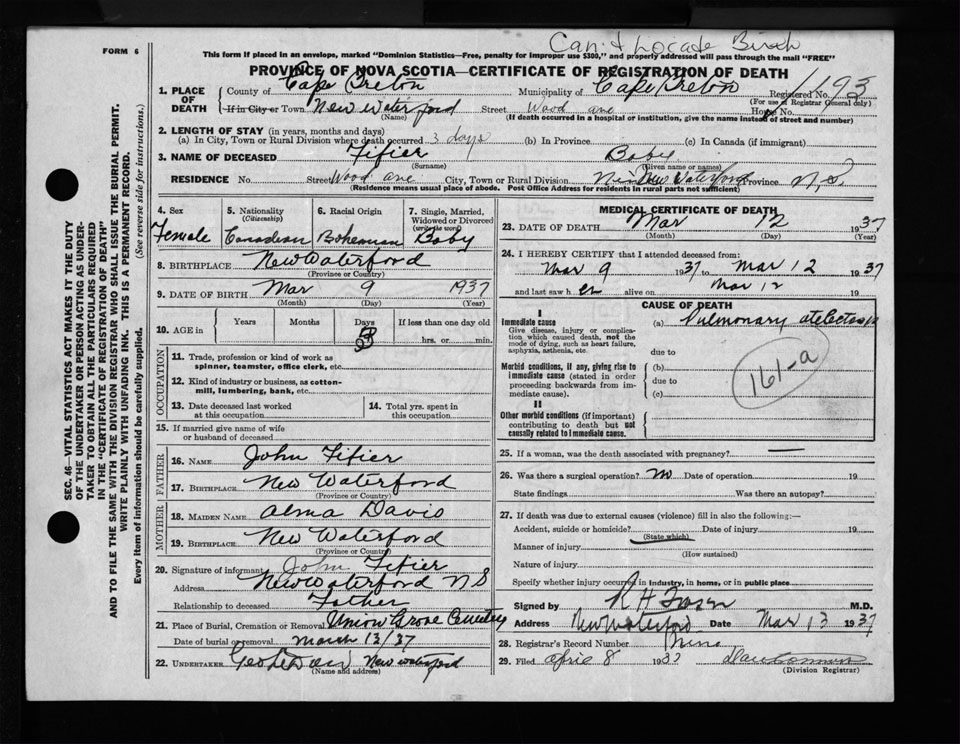 Can't Locate Birth
FORM 6
This form if placed in an envelope, marked "Dominion Statistics—Free, penalty for improper use $300," and properly addressed will pass through the mail "FREE"
PROVINCE OF NOVA SCOTIA—CERTIFICATE OF REGISTRATION OF DEATH
1. PLACE OF DEATH County of Cape Breton Municipality of Cape Breton Registered No. 1193
(For use of Registrar General only)
If in City or Town New Waterford Street Wood ave House No.
(Name) (If death occurred in a hospital or institution, give the name instead of street and number)
2. LENGTH OF STAY (in years, months and days)
(a) In City, Town or Rural Division where death occurred 3 days (b) In Province (c) In Canada (if immigrant)
3. NAME OF DECEASED Fifier Baby
(Surname) (Given name or names)
RESIDENCE No. Street Wood ave City, Town or Rural Division New Waterford Province N.S.
(Residence means usual place of abode. Post Office Address for residents in rural parts not sufficient)
4. Sex Female
5. Nationality (Citizenship) Canadian
6. Racial Origin Bohemian
7. Single, Married, Widowed or Divorced (write the word) Baby
8. BIRTHPLACE New Waterford
(Province or Country)
9. DATE OF BIRTH Mar 9 1937
(Month) (Day) (Year)
10. AGE in Years Months Days If less than one day old
hrs. or min.
OCCUPATION
11. Trade, profession or kind of work as spinner, teamster, office clerk, etc.
12. Kind of industry or business, as cotton-mill, lumbering, bank, etc.
13. Date deceased last worked at this occupation
14. Total yrs. spent in this occupation
15. If married give name of wife or husband of deceased
FATHER
16. NAME John Fifier
17. BIRTHPLACE New Waterford
(Province or Country)
MOTHER
18. MAIDEN NAME Alma Davis
19. BIRTHPLACE New Waterford
(Province or Country)
20. Signature of informant John Fifier
Address New Waterford N S
Relationship to deceased Father
21. Place of Burial, Cremation or Removal Union Grove Cemetery
Date of burial or removal March 13/37
22. UNDERTAKER New Waterford
(Name and address)
MEDICAL CERTIFICATE OF DEATH
23. DATE OF DEATH Mar 12 1937
(Month) (Day) (Year)
24. I HEREBY CERTIFY that I attended deceased from:
Mar 9 1937 to Mar 12 1937
and last saw her alive on Mar 12 19
CAUSE OF DEATH
I
Immediate cause (a) Pulmonary atelectasis
Give disease, injury or complication which caused death, not the mode of dying, such as heart failure, asphyxia, asthenia, etc.
due to
Morbid conditions, if any, giving rise to immediate cause (stated in order proceeding backwards from immediate cause).
(b)
due to
(c)
161-a
II
Other morbid conditions (if important) contributing to death but not causally related to immediate cause.
25. If a woman, was the death associated with pregnancy? —
26. Was there a surgical operation? no Date of operation 19
State findings Was there an autopsy?
27. If death was due to external causes (violence) fill in also the following:—
Accident, suicide or homicide? Date of injury 19
(State which)
Manner of injury
(How sustained)
Nature of injury
Specify whether injury occurred in industry, in home, or in public place
Signed by M.D.
Address New Waterford Date Mar 13 1937
28. Registrar's Record Number Nine
29. Filed April 8 1937
(Division Registrar)
SEC. 46—VITAL STATISTICS ACT MAKES IT THE DUTY
OF THE UNDERTAKER OR PERSON ACTING AS UNDER-
TAKER TO OBTAIN ALL THE PARTICULARS REQUIRED
IN THE "CERTIFICATE OF REGISTRATION OF DEATH"
AND TO FILE THE SAME WITH THE DIVISION REGISTRAR WHO SHALL ISSUE THE BURIAL PERMIT.
WRITE PLAINLY WITH UNFADING INK. THIS IS A PERMANENT RECORD.
Every item of information should be carefully supplied. (See reverse side for instructions.)